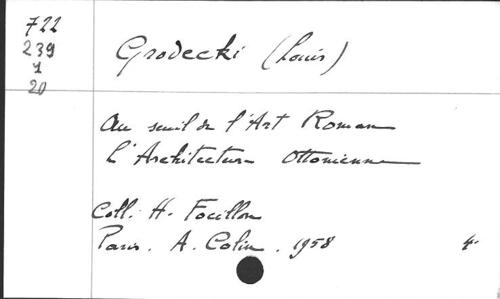 722
239
1
20
Grodecki (Louis)
Au seuil de l'Art Roman
L'Architecture Ottonienne
Coll. H. Focillon
Paris. A. Colin. 1958 4°